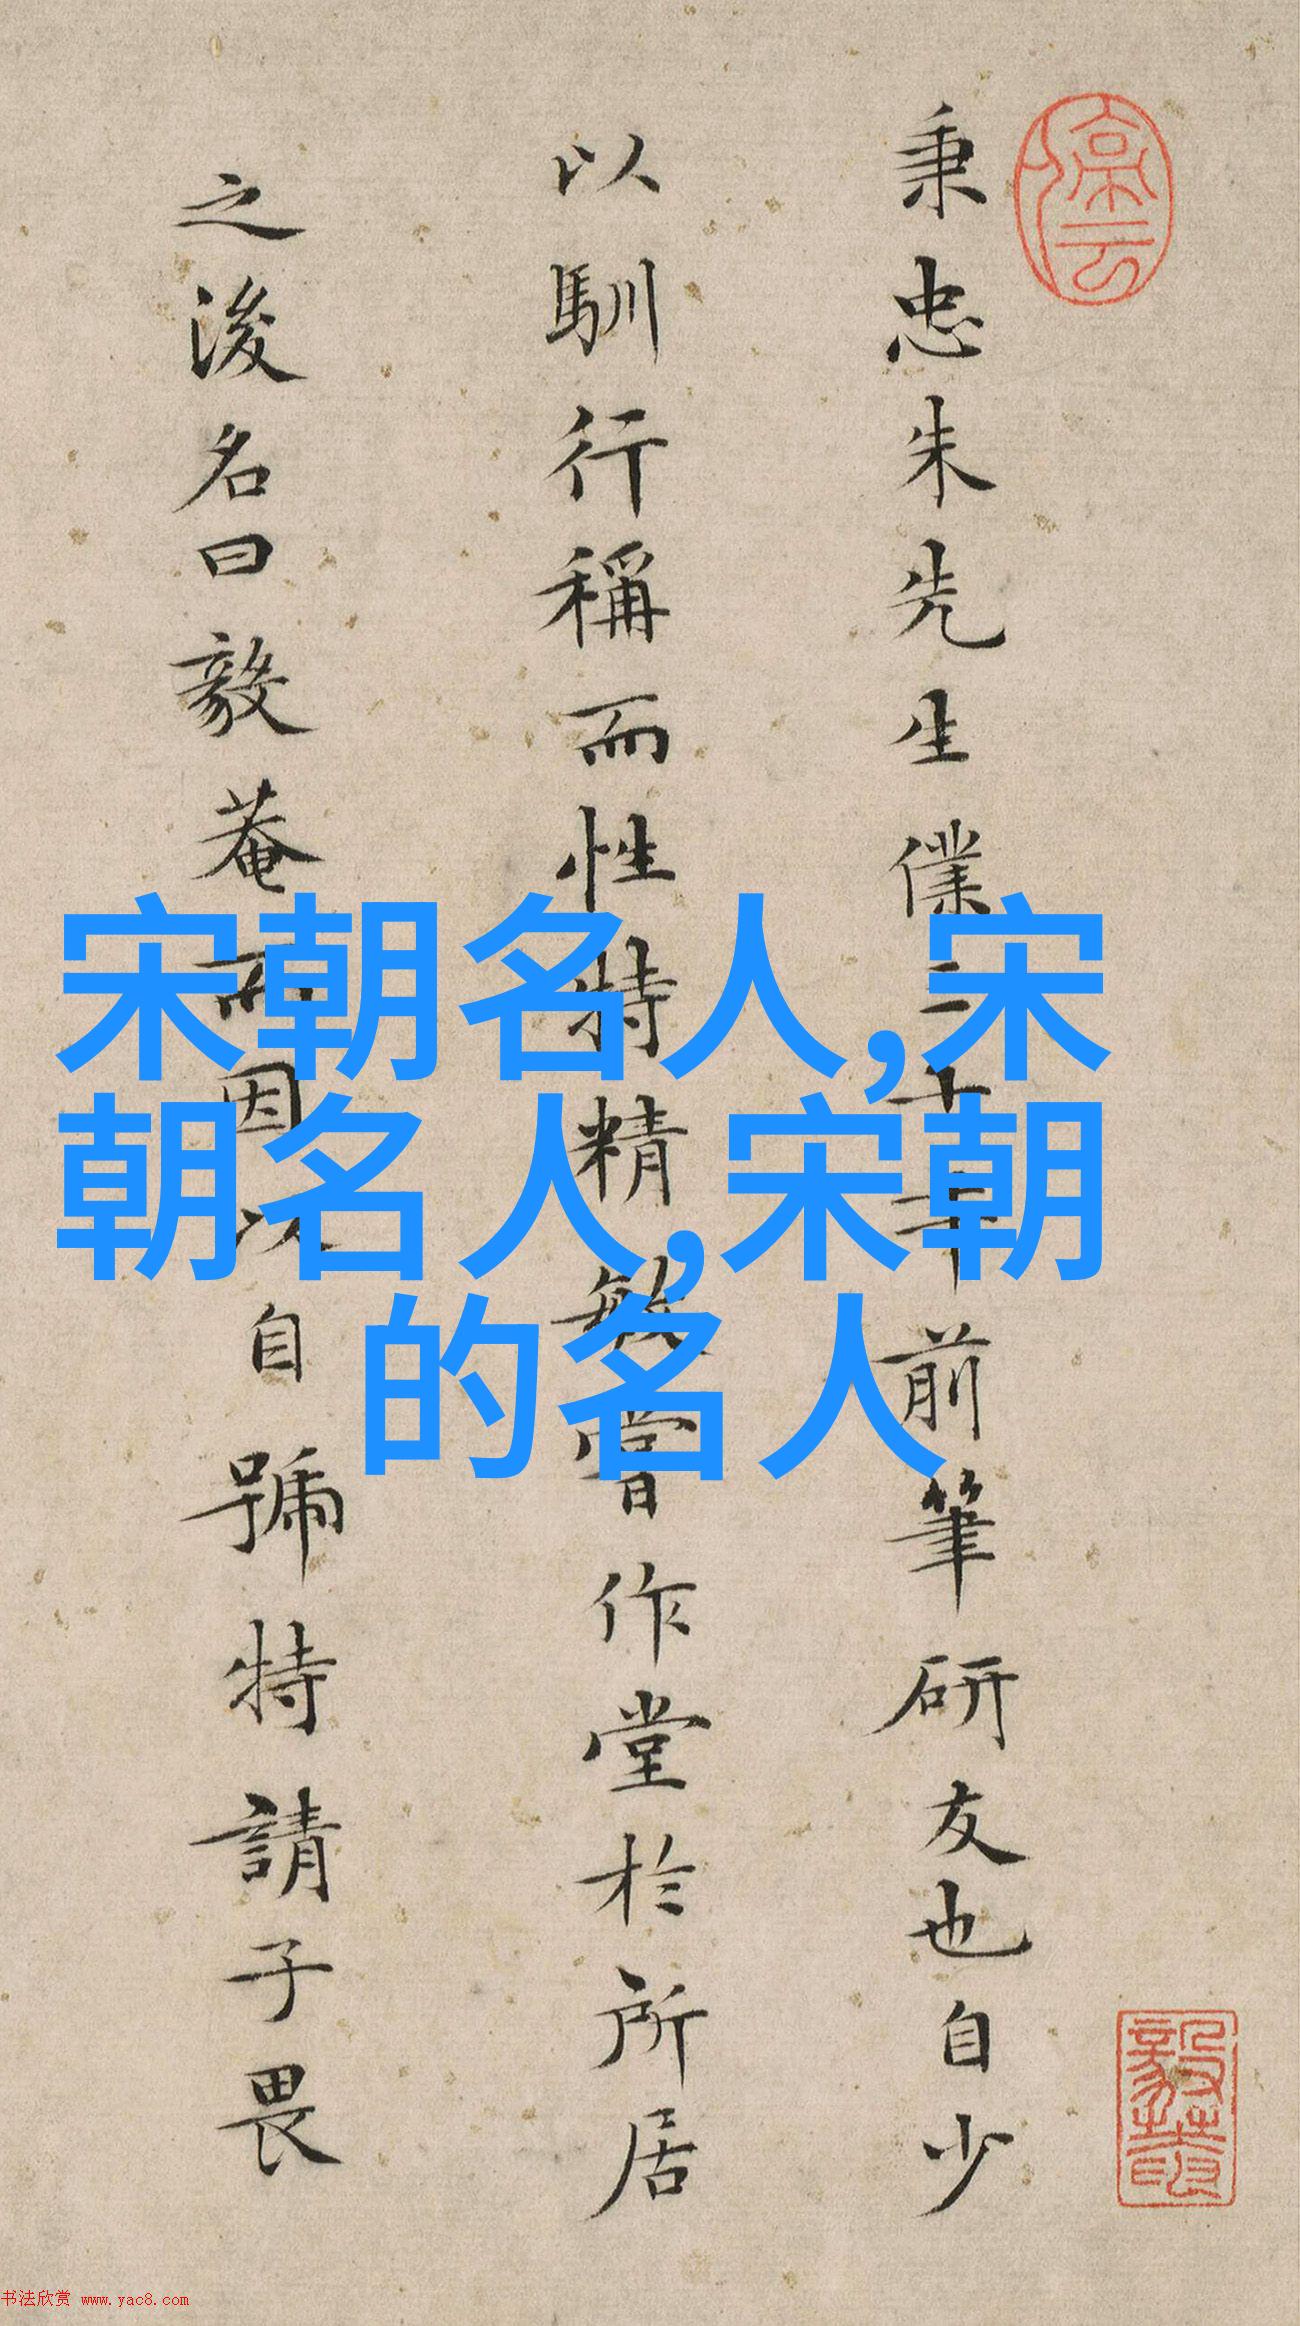 秉忠朱先生僕二十年前筆研友也自少
以馴行稱而性特精敏嘗作堂於所居
之後名曰毅菴而因以自號特請予畏
宋朝名人,宋
朝名人,宋朝
的名人
书法欣赏 www.yac8.com